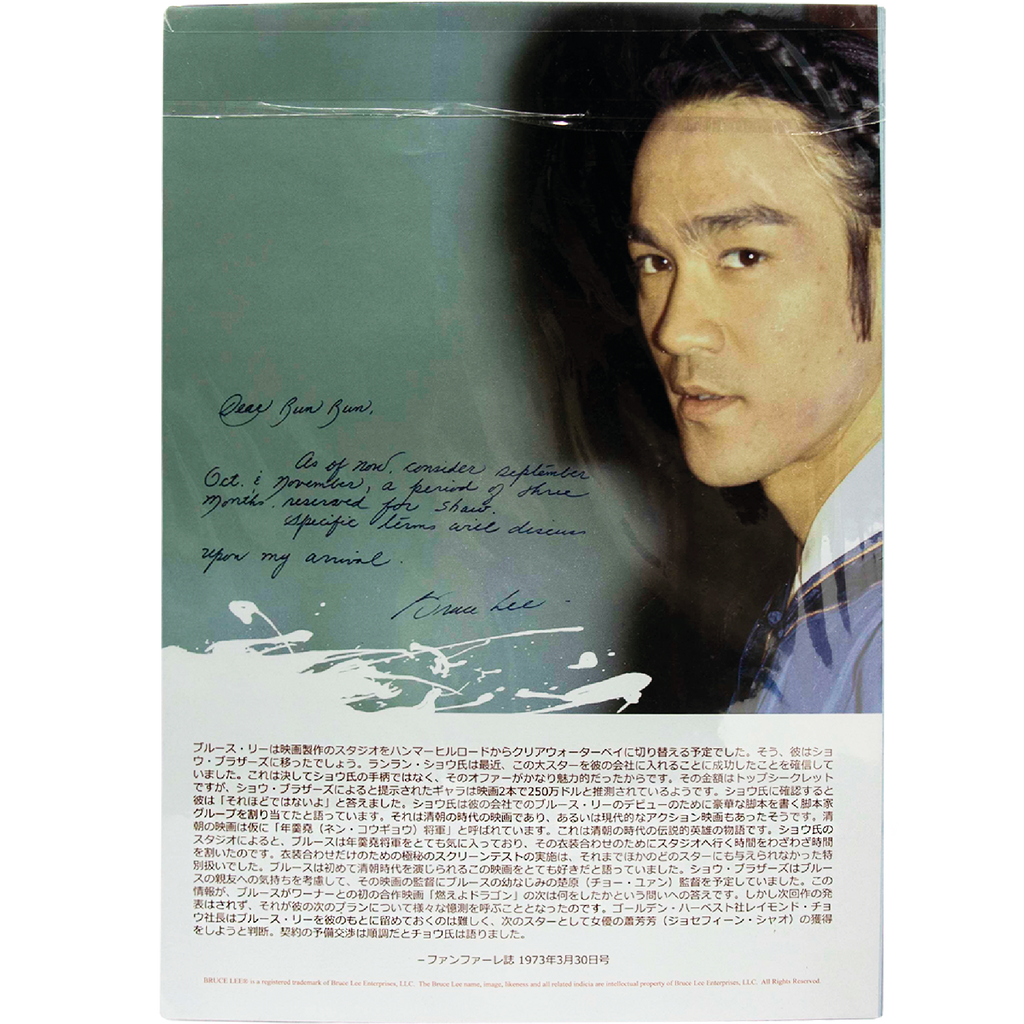 Dear Run Run,
As of now, consider september
Oct. & november, a period of three
months, reserved for Shaw.
Specific terms will discuss
upon my arrival.
Bruce Lee
ブルース・リーは映画製作のスタジオをハンマーヒルロードからクリアウォーターベイに切り替える予定でした。そう、彼はショ
ウ・ブラザーズに移ったでしょう。ランラン・ショウ氏は最近、この大スターを彼の会社に入れることに成功したことを確信して
いました。これは決してショウ氏の手柄ではなく、そのオファーがかなり魅力的だったからです。その金額はトップシークレット
ですが、ショウ・ブラザーズによると提示されたギャラは映画2本で250万ドルと推測されているようです。ショウ氏に確認すると
彼は「それほどではないよ」と答えました。ショウ氏は彼の会社でのブルース・リーのデビューのために豪華な脚本を書く脚本家
グループを割り当てたと語っています。それは清朝の時代の映画であり、あるいは現代的なアクション映画もあったそうです。清
朝の映画は仮に「年羹堯（ネン・コウギョウ）将軍」と呼ばれています。これは清朝の時代の伝説的英雄の物語です。ショウ氏の
スタジオによると、ブルースは年羹堯将軍をとても気に入っており、その衣装合わせのためにスタジオへ行く時間をわざわざ時間
を割いたのです。衣装合わせだけのための極秘のスクリーンテストの実施は、それまでほかのどのスターにも与えられなかった特
別扱いでした。ブルースは初めて清朝時代を演じられるこの映画をとても好きだと語っていました。ショウ・ブラザーズはブルー
スの親友への気持ちを考慮して、その映画の監督にブルースの幼なじみの楚原（チョー・ユァン）監督を予定していました。この
情報が、ブルースがワーナーとの初の合作映画「燃えよドラゴン」の次は何をしたかという問いへの答えです。しかし次回作の発
表はされず、それが彼の次のプランについて様々な憶測を呼ぶこととなったのです。ゴールデン・ハーベスト社レイモンド・チョ
ウ社長はブルース・リーを彼のもとに留めておくのは難しく、次のスターとして女優の蕭芳芳（ジョセフィーン・シャオ）の獲得
をしようと判断。契約の予備交渉は順調だとチョウ氏は語りました。
－ファンファーレ誌 1973年3月30日号
BRUCE LEE® is a registered trademark of Bruce Lee Enterprises, LLC. The Bruce Lee name, image, likeness and all related indicia are intellectual property of Bruce Lee Enterprises, LLC. All Rights Reserved.